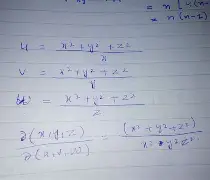 = n [
= n(n-1)
u = x² + y² + z² / x
v = x² + y² + z² / y
w = x² + y² + z² / z
∂(x, y, z) / ∂(u, v, w) = (x² + y² + z²) / x² y² z²